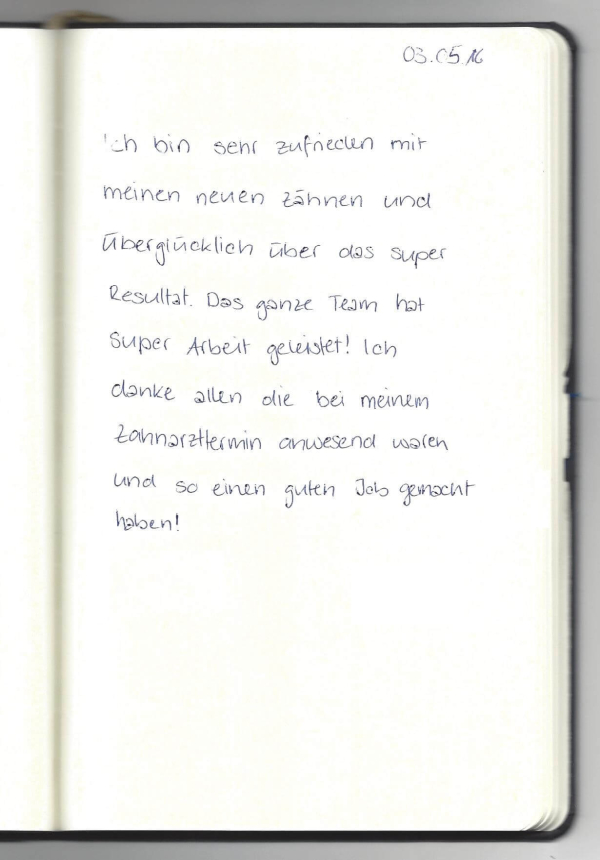 03.05.16
Ich bin sehr zufrieden mit
meinen neuen Zähnen und
Überglücklich über das super
Resultat. Das ganze Team hat
super Arbeit geleistet! Ich
danke allen die bei meinem
Zahnarzttermin anwesend waren
und so einen guten Job gemacht
haben!